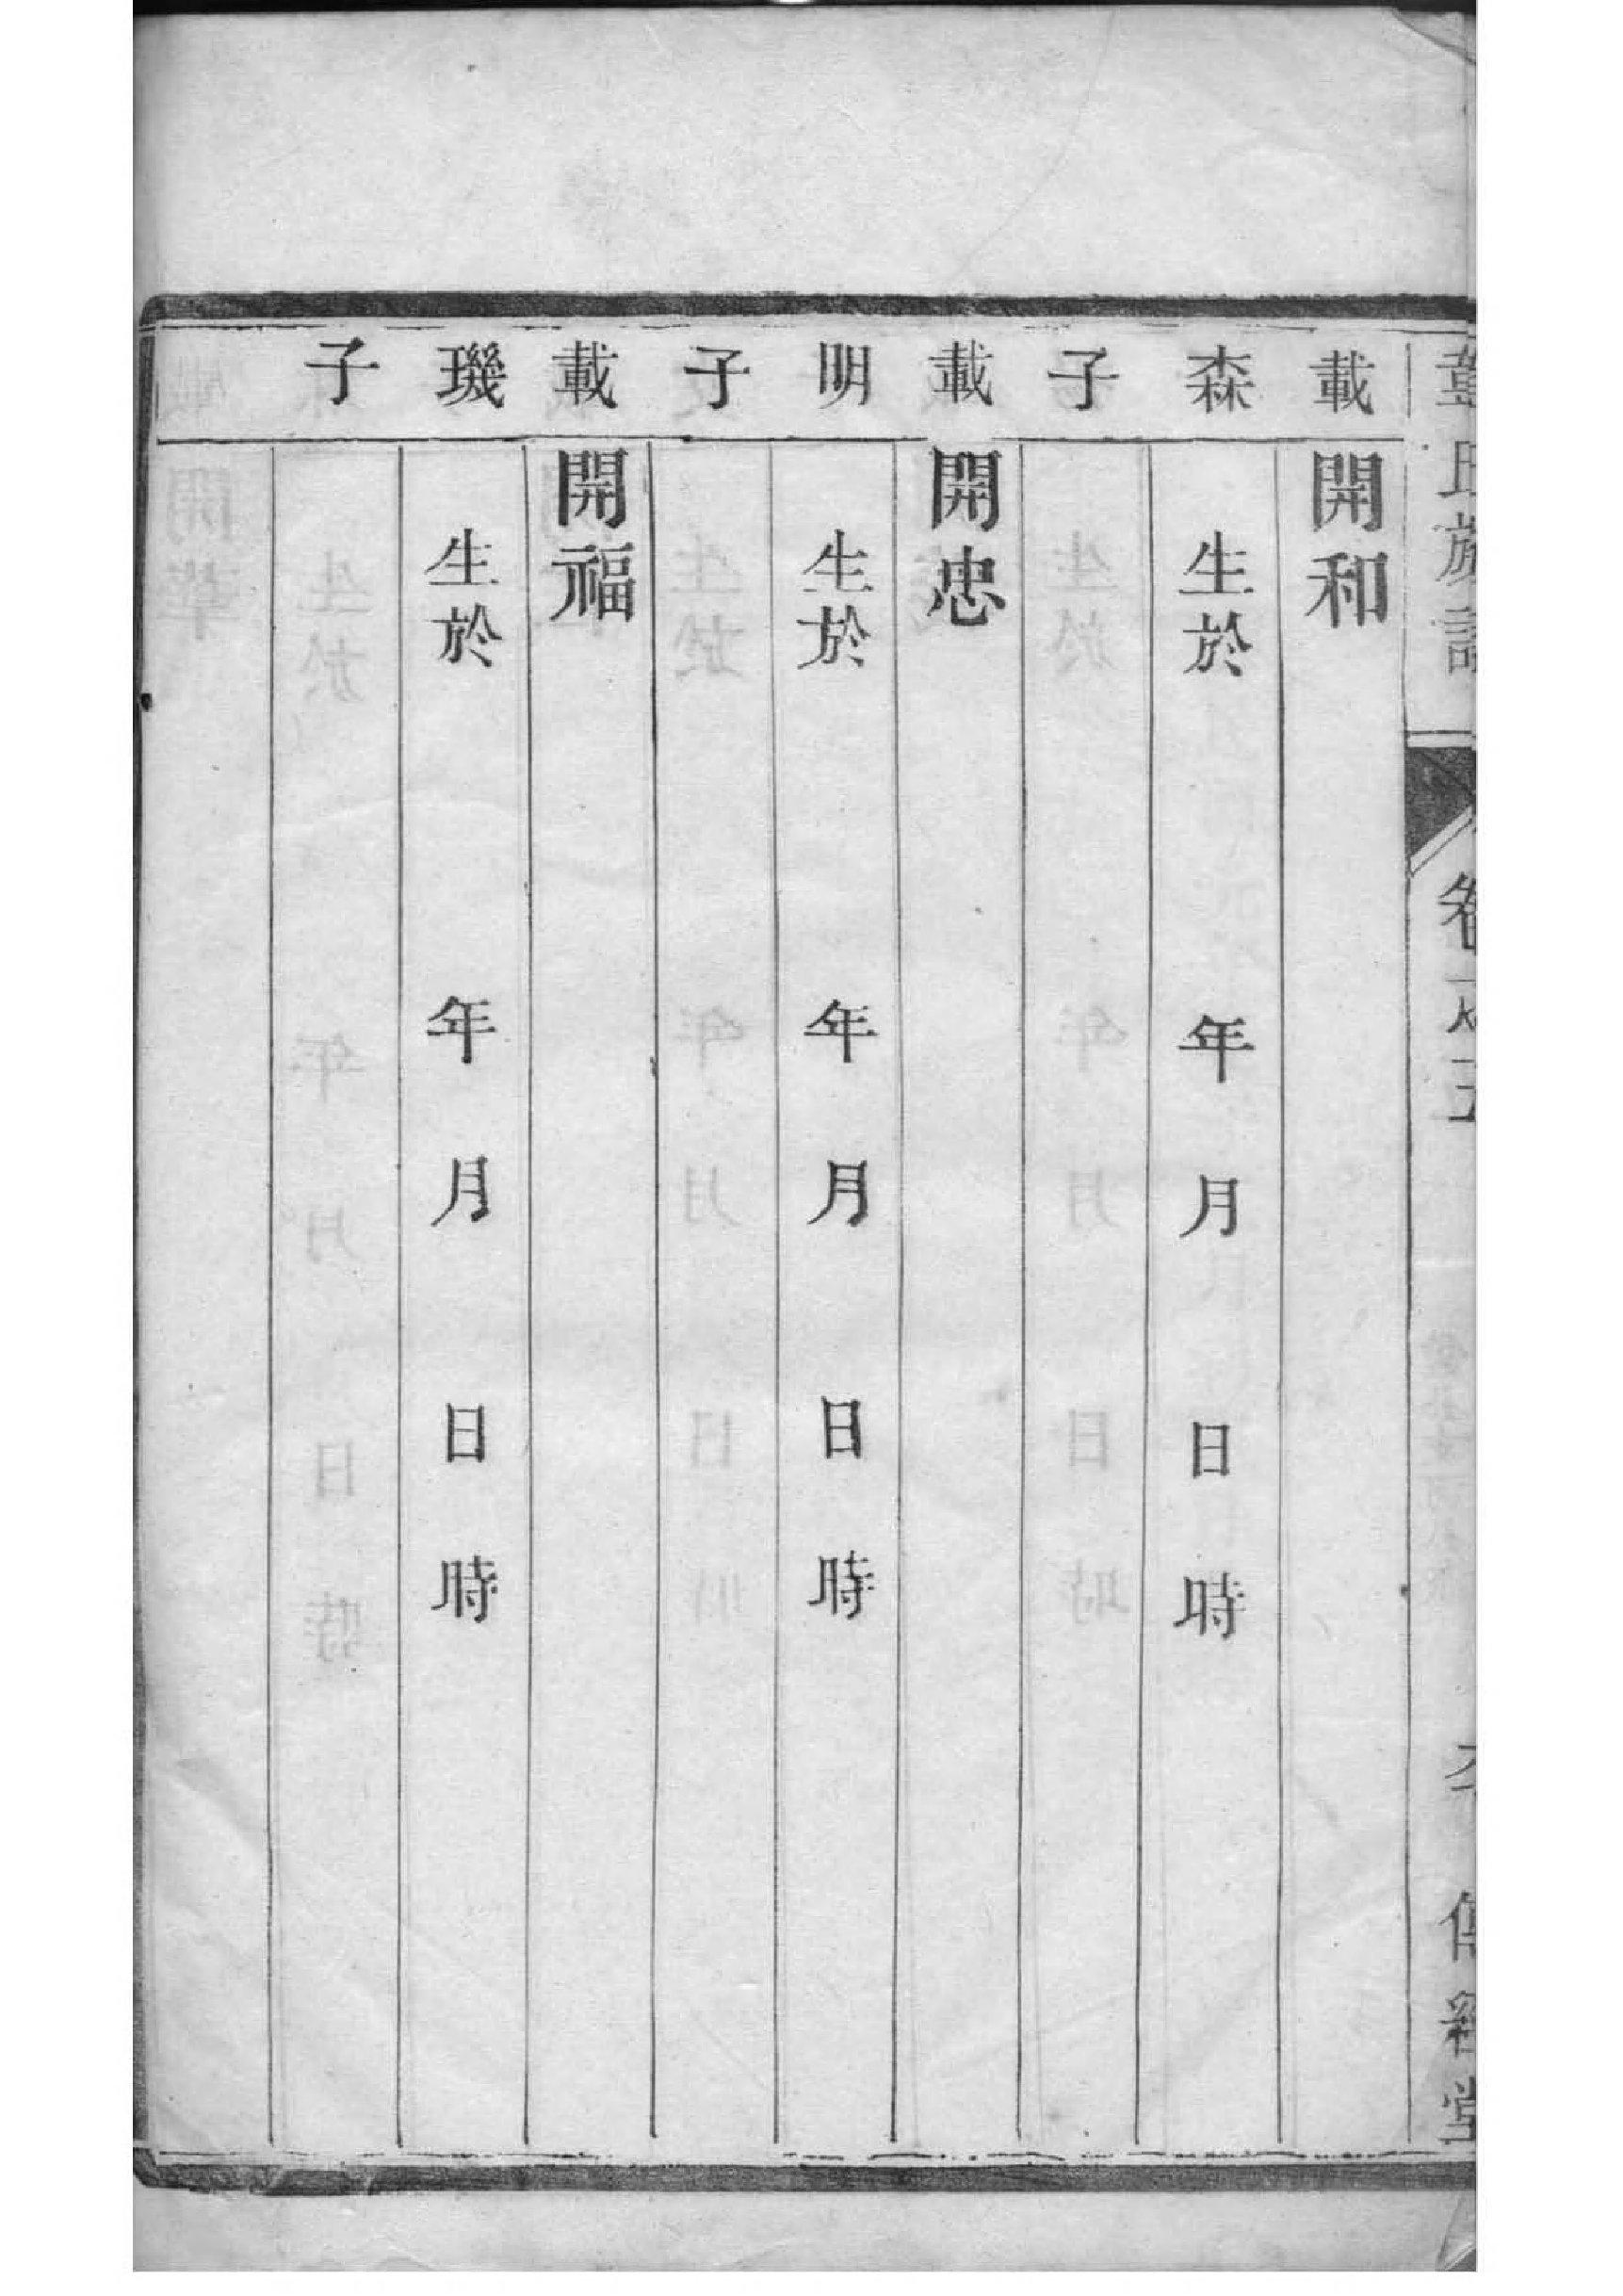 氏族譜
載森子
開和
生於 年 月 日 時
載明子
開忠
生於 年 月 日 時
載璣子
開福
生於 年 月 日 時